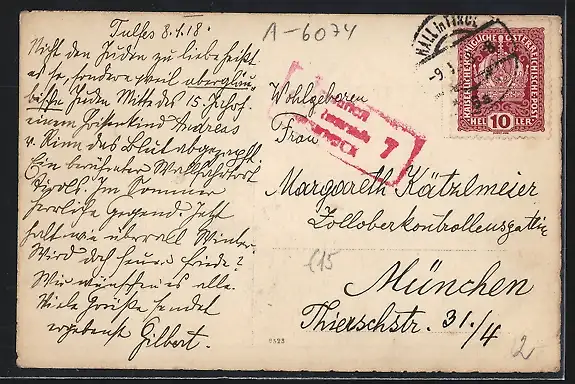 Tulfes 8.1.18.
Nicht den Juden zu liebe heißt
es so, sondern weil abergläu-
bische Juden Mitte des 15. Jhdts.
einem Hirtenkind Andreas
v. Rinn das Blut abgezapft.
Ein berühmter Wallfahrtsort
Tirols. Im Sommer
herrliche Gegend. Jetzt
halt wie überall Winter.
Wird doch heuer Friede?
Wir wünschen es alle.
Viele Grüße sendet
ergebenst Gilbert.
A-6074
HALL in TIROL
KAISERLICHE KÖNIGLICHE ÖSTERREICHISCHE POST
HELLER
10
7
Wohlgeboren
Frau
Margareth Kätzlmeier
Zolloberkontrollensgattin
München
Thierschstr. 31./4
€15
2